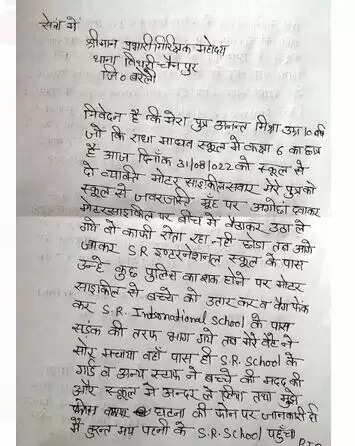 सेवा में
श्रीमान प्रभारी निरीक्षक महोदय
थाना बिथरी चैनपुर
जि० बरेली
निवेदन है कि मेरा पुत्र अनन्त मिश्रा उम्र 10 वर्ष
जो कि राधा माधव स्कूल में कक्षा 6 का छात्र
है आज दिनाँक 31/08/022 को स्कूल से
दो व्यक्ति मोटर साइकिल सवार मेरे पुत्र को
स्कूल से जबरजस्ती मुंह पर अगोछा दबाकर
मोटरसाइकिल पर बीच में बैठाकर उठा ले
गये वो काफी रोता रहा नही छोडा तब आगे
जाकर S R इन्टरनेशनल स्कूल के पास
उन्हे कुछ पुलिस का शक होने पर मोटर
साइकिल से बच्चे को उतार कर व बैग फेंक
कर S.R. International School के पास
सडक की तरफ भाग गये तब मेरे बेटे ने
सोर मचाया वहाँ पास ही S.R. School के
गार्ड व अन्य स्टाफ ने बच्चे की मदद की
और स्कूल में अन्दर ले लिया तथा मुझे
घटना की फोन पर जानकारी दी
में तुरन्त मय पत्नी के S.R. School पहुँचा